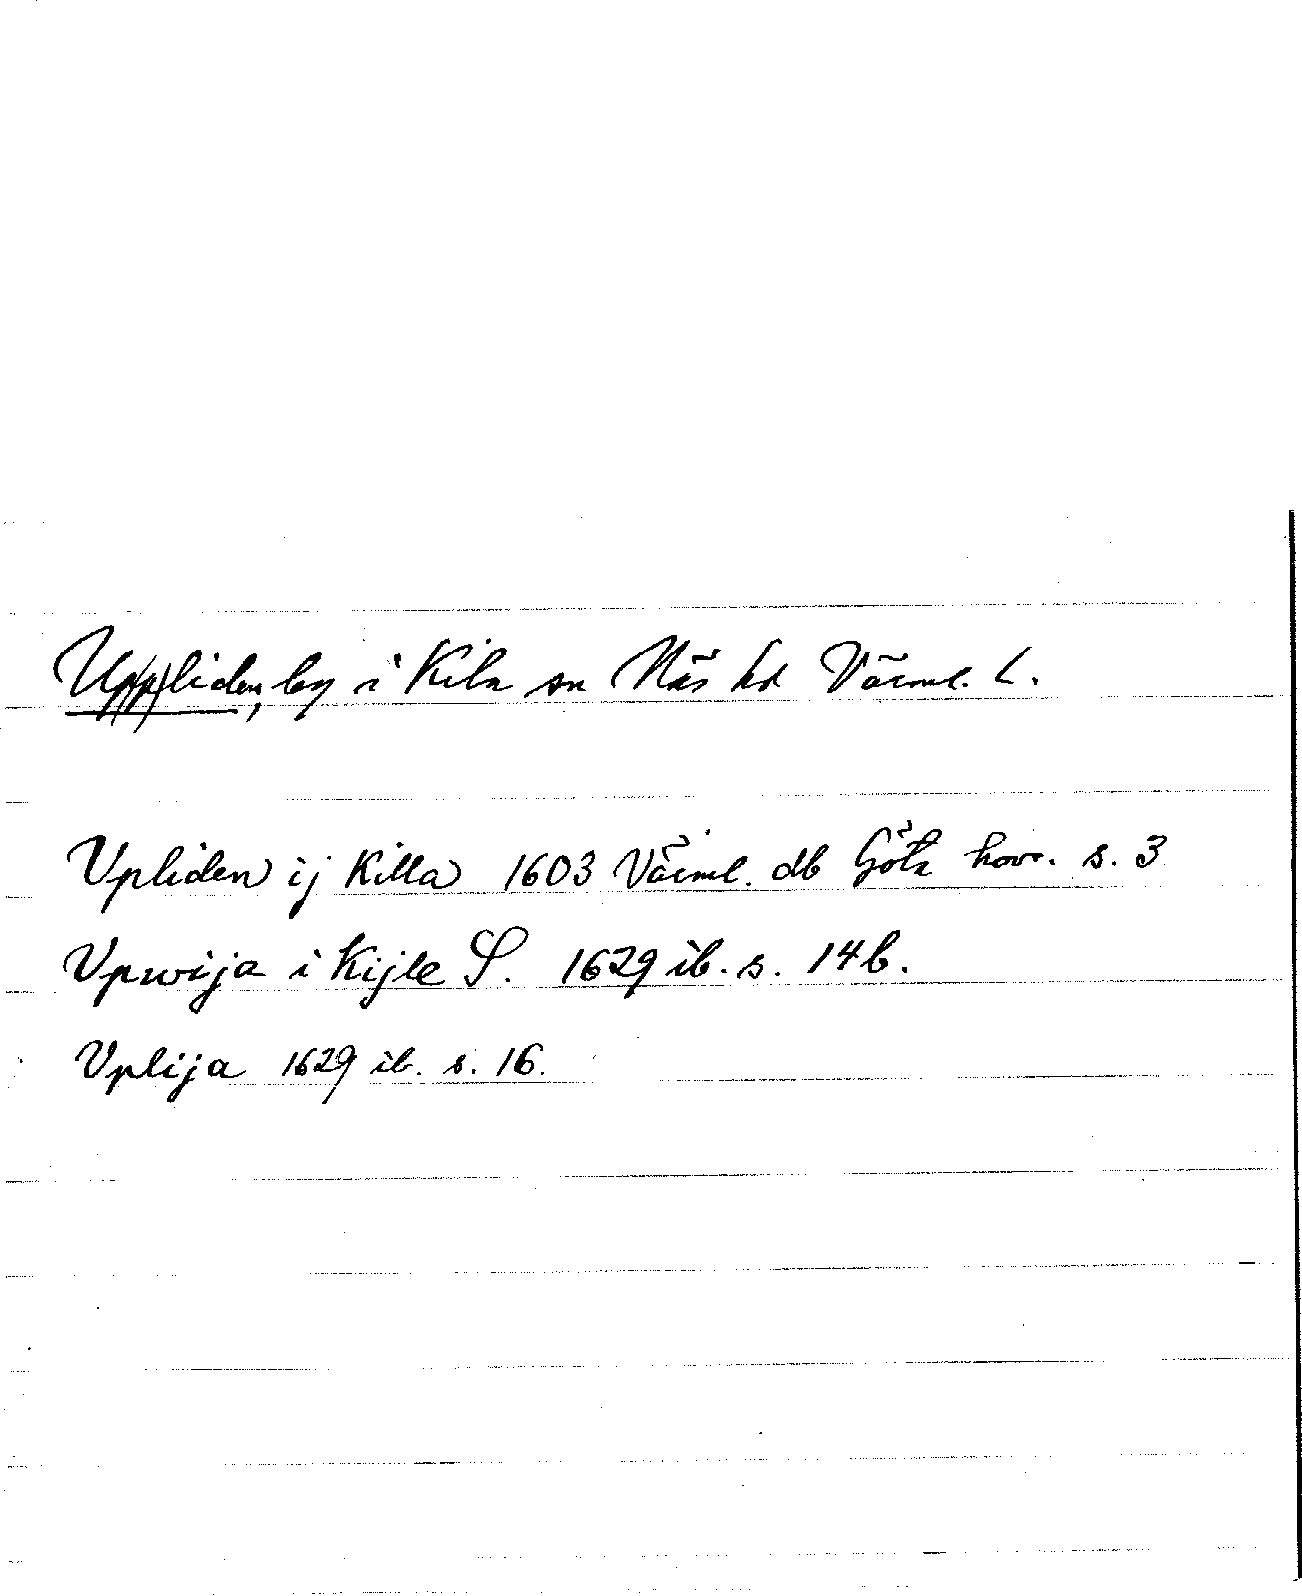 Up(p)liden, by i Kila sn Näs hd Värml. L.
Vpliden ij Killa 1603 Värml. db Göta hovr. s. 3
Vpwija i Kijle S. 1629 ib. s. 14b.
Vplija 1629 ib. s. 16.